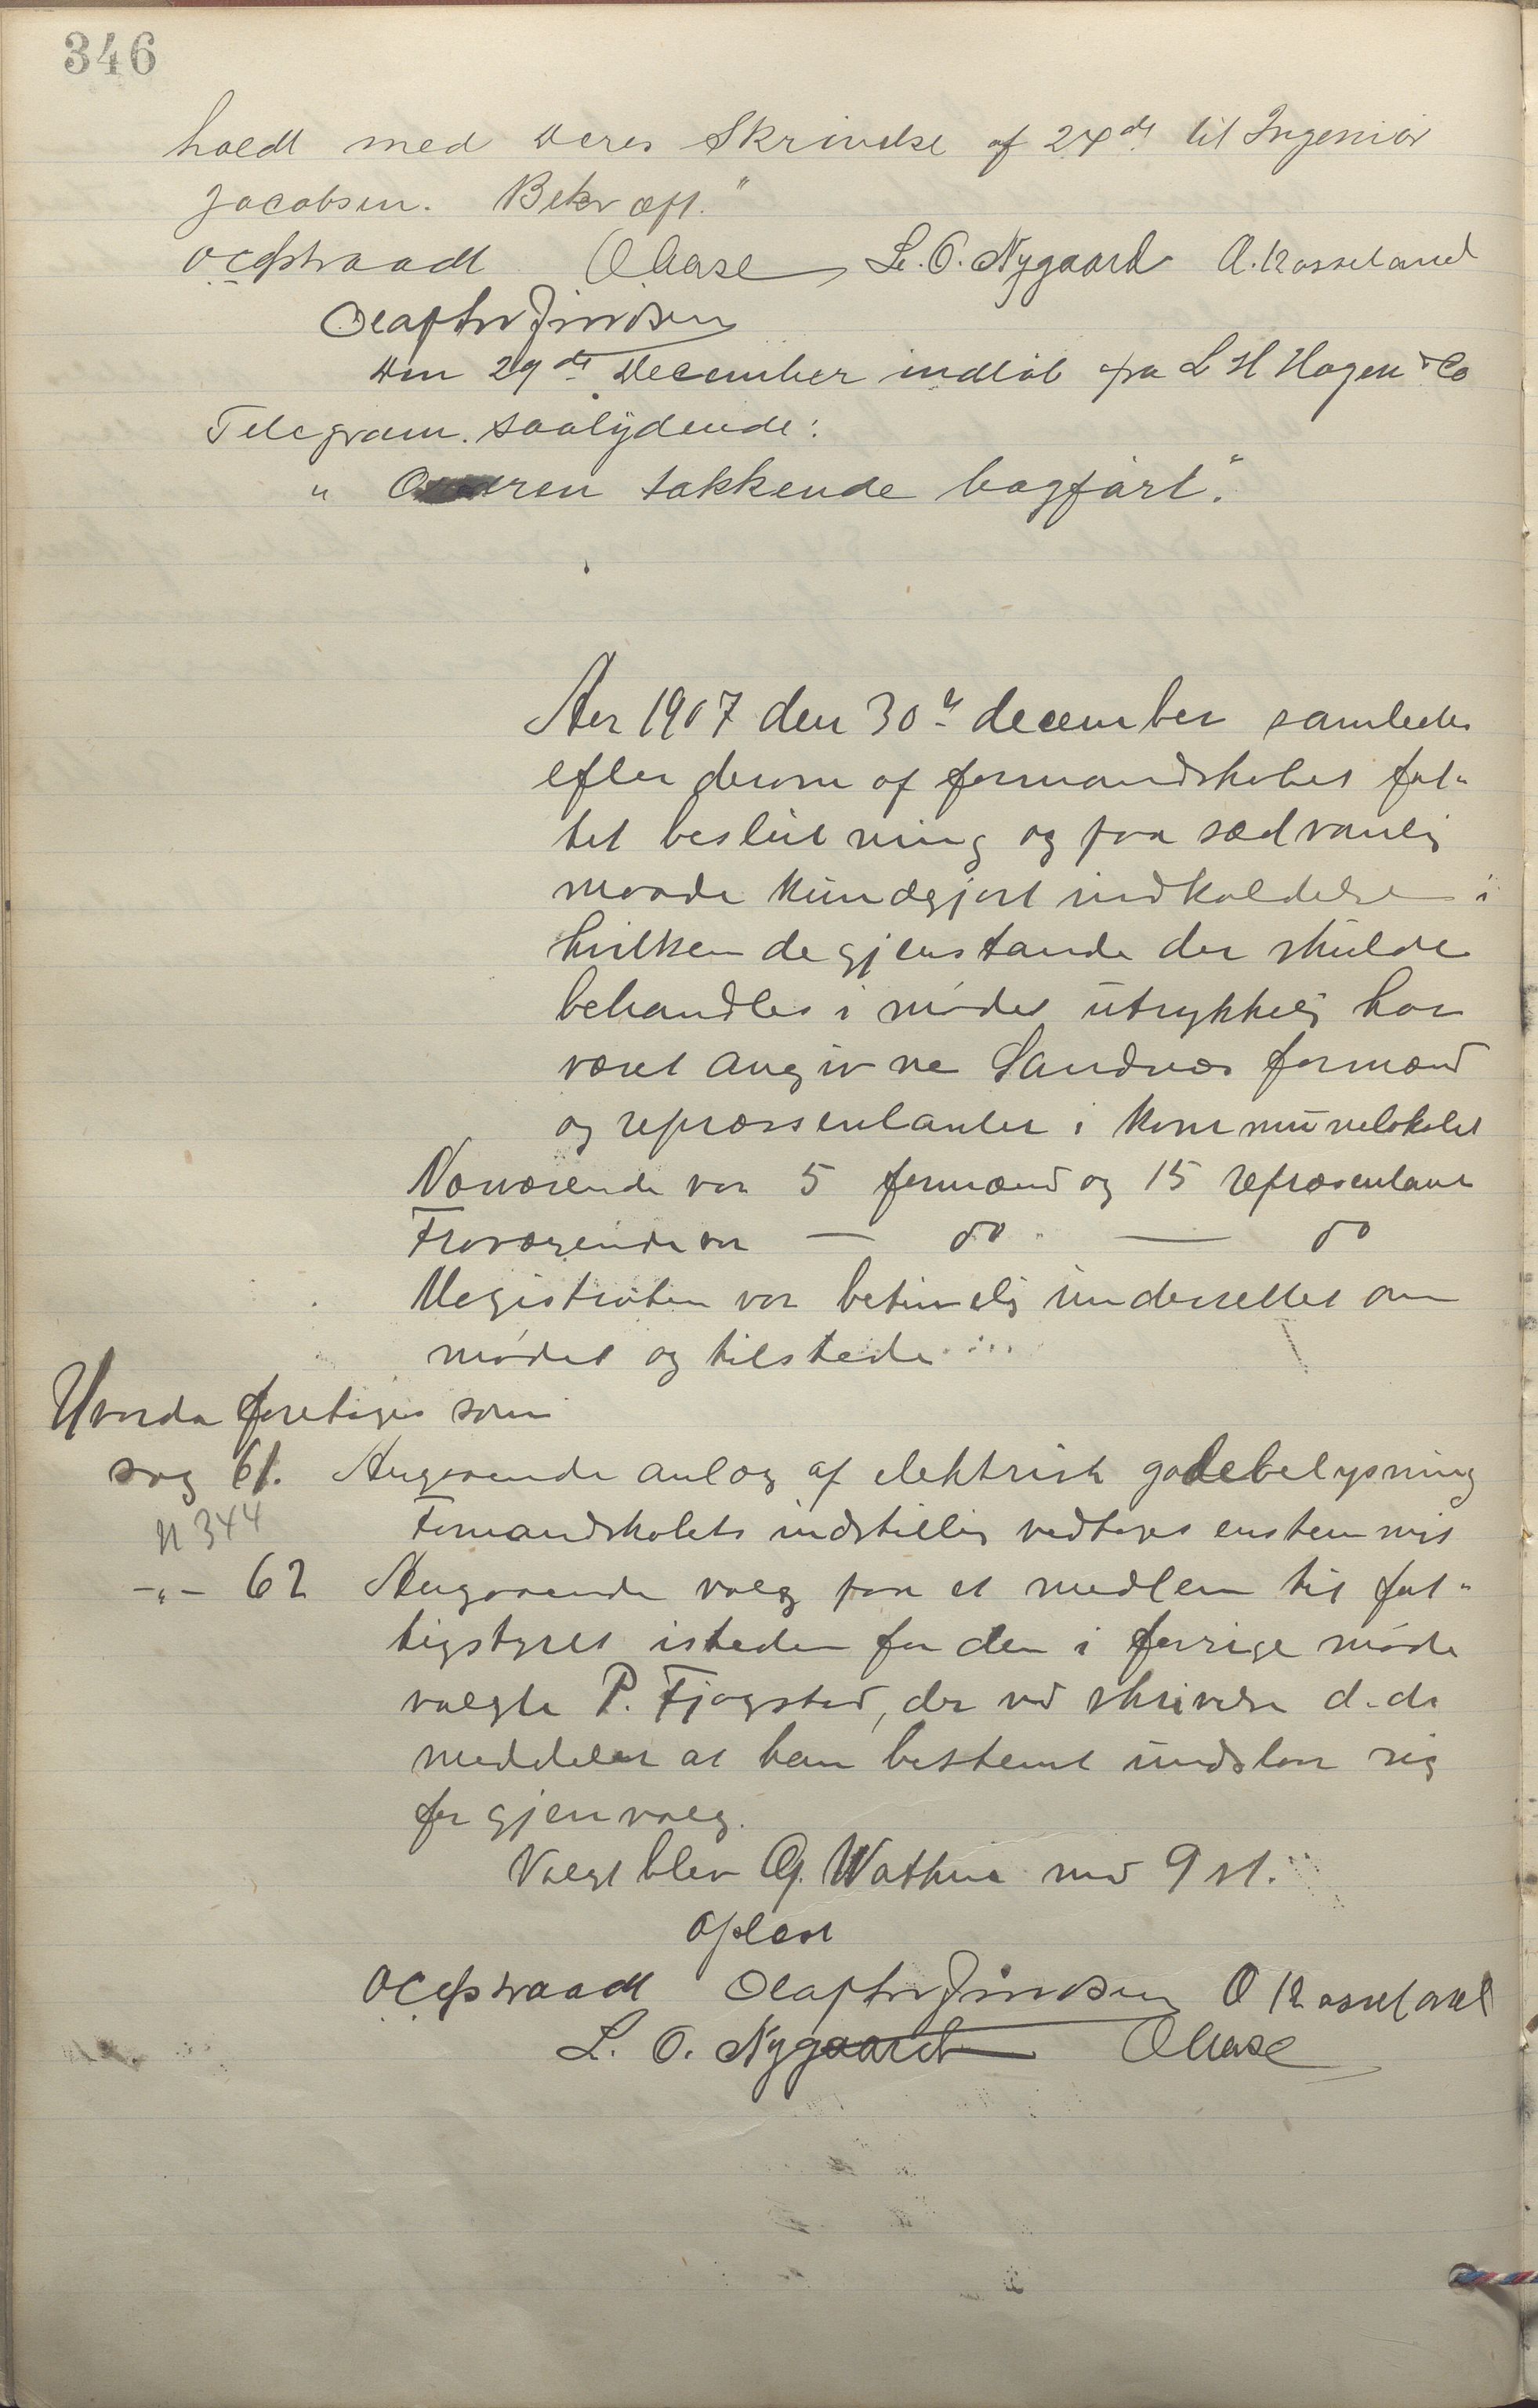 346
holdt med Deres Skrivelse af 24de til Ingeniør
Jacobsen. Bekræft."
O Aase L. O. Nygaard A. Rosseland
Den 29de December indløb fra L H Hagen & Co
Telegram. saalydende:
" Ordren takkende bogført."
Aar 1907 den 30te december samledes
efter derom af formandskabet fat-
tet beslutning og paa sædvanlig
maade kundgjort indkaldelse i
hvilken de gjenstande der skulde
behandles i mødet utrykkelig har
været angivne Sandnes formænd
og repræssentanter i kommunelokalet
Nærværende var 5 formænd og 15 repræsentant
Fraværende var — do. — do
Magistraten var betimelig underrettet om
mødet og tilstede
Hvorda foretages som
sag 61. Angaaende anlæg af elektrisk gadebelysning
N 344
Formandskabets indstilling vedtages enstemmig
-"- 62 Angaaende valg paa et medlem til fat-
tigstyret isteden for den i forrige møde
valgte P. Fjogstad, der ved skrivelse d.d.
meddeler at han bestemt undslaar sig
for gjenvalg.
Valgt blev G. Wathne med 9 st.
Oplæst
O Rosseland
L. O. Nygaard O Aase